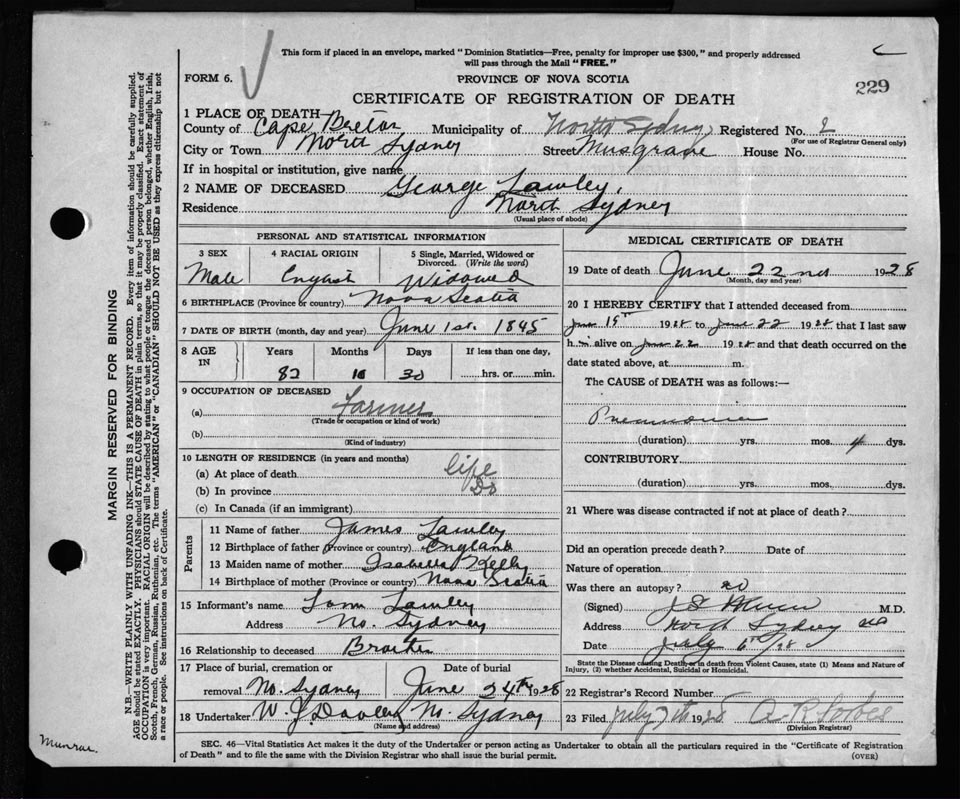 This form if placed in an envelope, marked "Dominion Statistics—Free, penalty for improper use $300," and properly addressed
will pass through the Mail "FREE."
FORM 6.
PROVINCE OF NOVA SCOTIA
229
CERTIFICATE OF REGISTRATION OF DEATH
1 PLACE OF DEATH
County of Cape Breton Municipality of North Sydney Registered No. 2
(For use of Registrar General only)
City or Town North Sydney Street Musgrave House No.
If in hospital or institution, give name
2 NAME OF DECEASED George Lawley,
Residence North Sydney
(Usual place of abode)
PERSONAL AND STATISTICAL INFORMATION
3 SEX 4 RACIAL ORIGIN 5 Single, Married, Widowed or Divorced. (Write the word)
Male English Widowed
6 BIRTHPLACE (Province or country) Nova Scotia
7 DATE OF BIRTH (month, day and year) June 1st. 1845
8 AGE IN Years Months Days If less than one day,
82 30 hrs. or min.
9 OCCUPATION OF DECEASED
(a) Farmer
(Trade or occupation or kind of work)
(b)
(Kind of industry)
10 LENGTH OF RESIDENCE (in years and months)
(a) At place of death life
(b) In province Do
(c) In Canada (if an immigrant)
Parents
11 Name of father James Lawley
12 Birthplace of father (Province or country) England
13 Maiden name of mother Isabella Kelly
14 Birthplace of mother (Province or country) Nova Scotia
15 Informant's name Lawley
Address No. Sydney
16 Relationship to deceased Brother
17 Place of burial, cremation or Date of burial
removal No. Sydney June 24th 1928
18 Undertaker W. J. Dooley No. Sydney
(Name and address)
MEDICAL CERTIFICATE OF DEATH
19 Date of death June 22nd 1928
(Month, day and year)
20 I HEREBY CERTIFY that I attended deceased from
June 1928 to June 22 1928 that I last saw
h im alive on June 22 1928 and that death occurred on the
date stated above, at m.
The CAUSE of DEATH was as follows:—
Pneumonia
(duration) yrs. mos. 4 dys.
CONTRIBUTORY
(duration) yrs. mos. dys.
21 Where was disease contracted if not at place of death?
Did an operation precede death? Date of
Nature of operation
Was there an autopsy? no
(Signed) M.D.
Address North Sydney
Date July 6th/28
State the Disease causing Death, or in death from Violent Causes, state (1) Means and Nature of
Injury, (2) whether Accidental, Suicidal or Homicidal.
22 Registrar's Record Number
23 Filed July 7th 1928 A R Forbes
(Division Registrar)
SEC. 46—Vital Statistics Act makes it the duty of the Undertaker or person acting as Undertaker to obtain all the particulars required in the "Certificate of Registration
of Death" and to file the same with the Division Registrar who shall issue the burial permit.
(OVER)
MARGIN RESERVED FOR BINDING
N.B.—WRITE PLAINLY WITH UNFADING INK—THIS IS A PERMANENT RECORD. Every item of information should be carefully supplied.
AGE should be stated EXACTLY. PHYSICIANS should STATE CAUSE OF DEATH in plain terms, so that it may be properly classified. Exact statement of
OCCUPATION is very important. RACIAL ORIGIN will be described by stating to what people or tongue the deceased person belonged, whether English, Irish,
Scotch, French, German, Russian, Ruthenian, etc. The terms "AMERICAN" or "CANADIAN" SHOULD NOT BE USED as they express citizenship but not
a race or people. See instructions on back of Certificate.
Munroe.